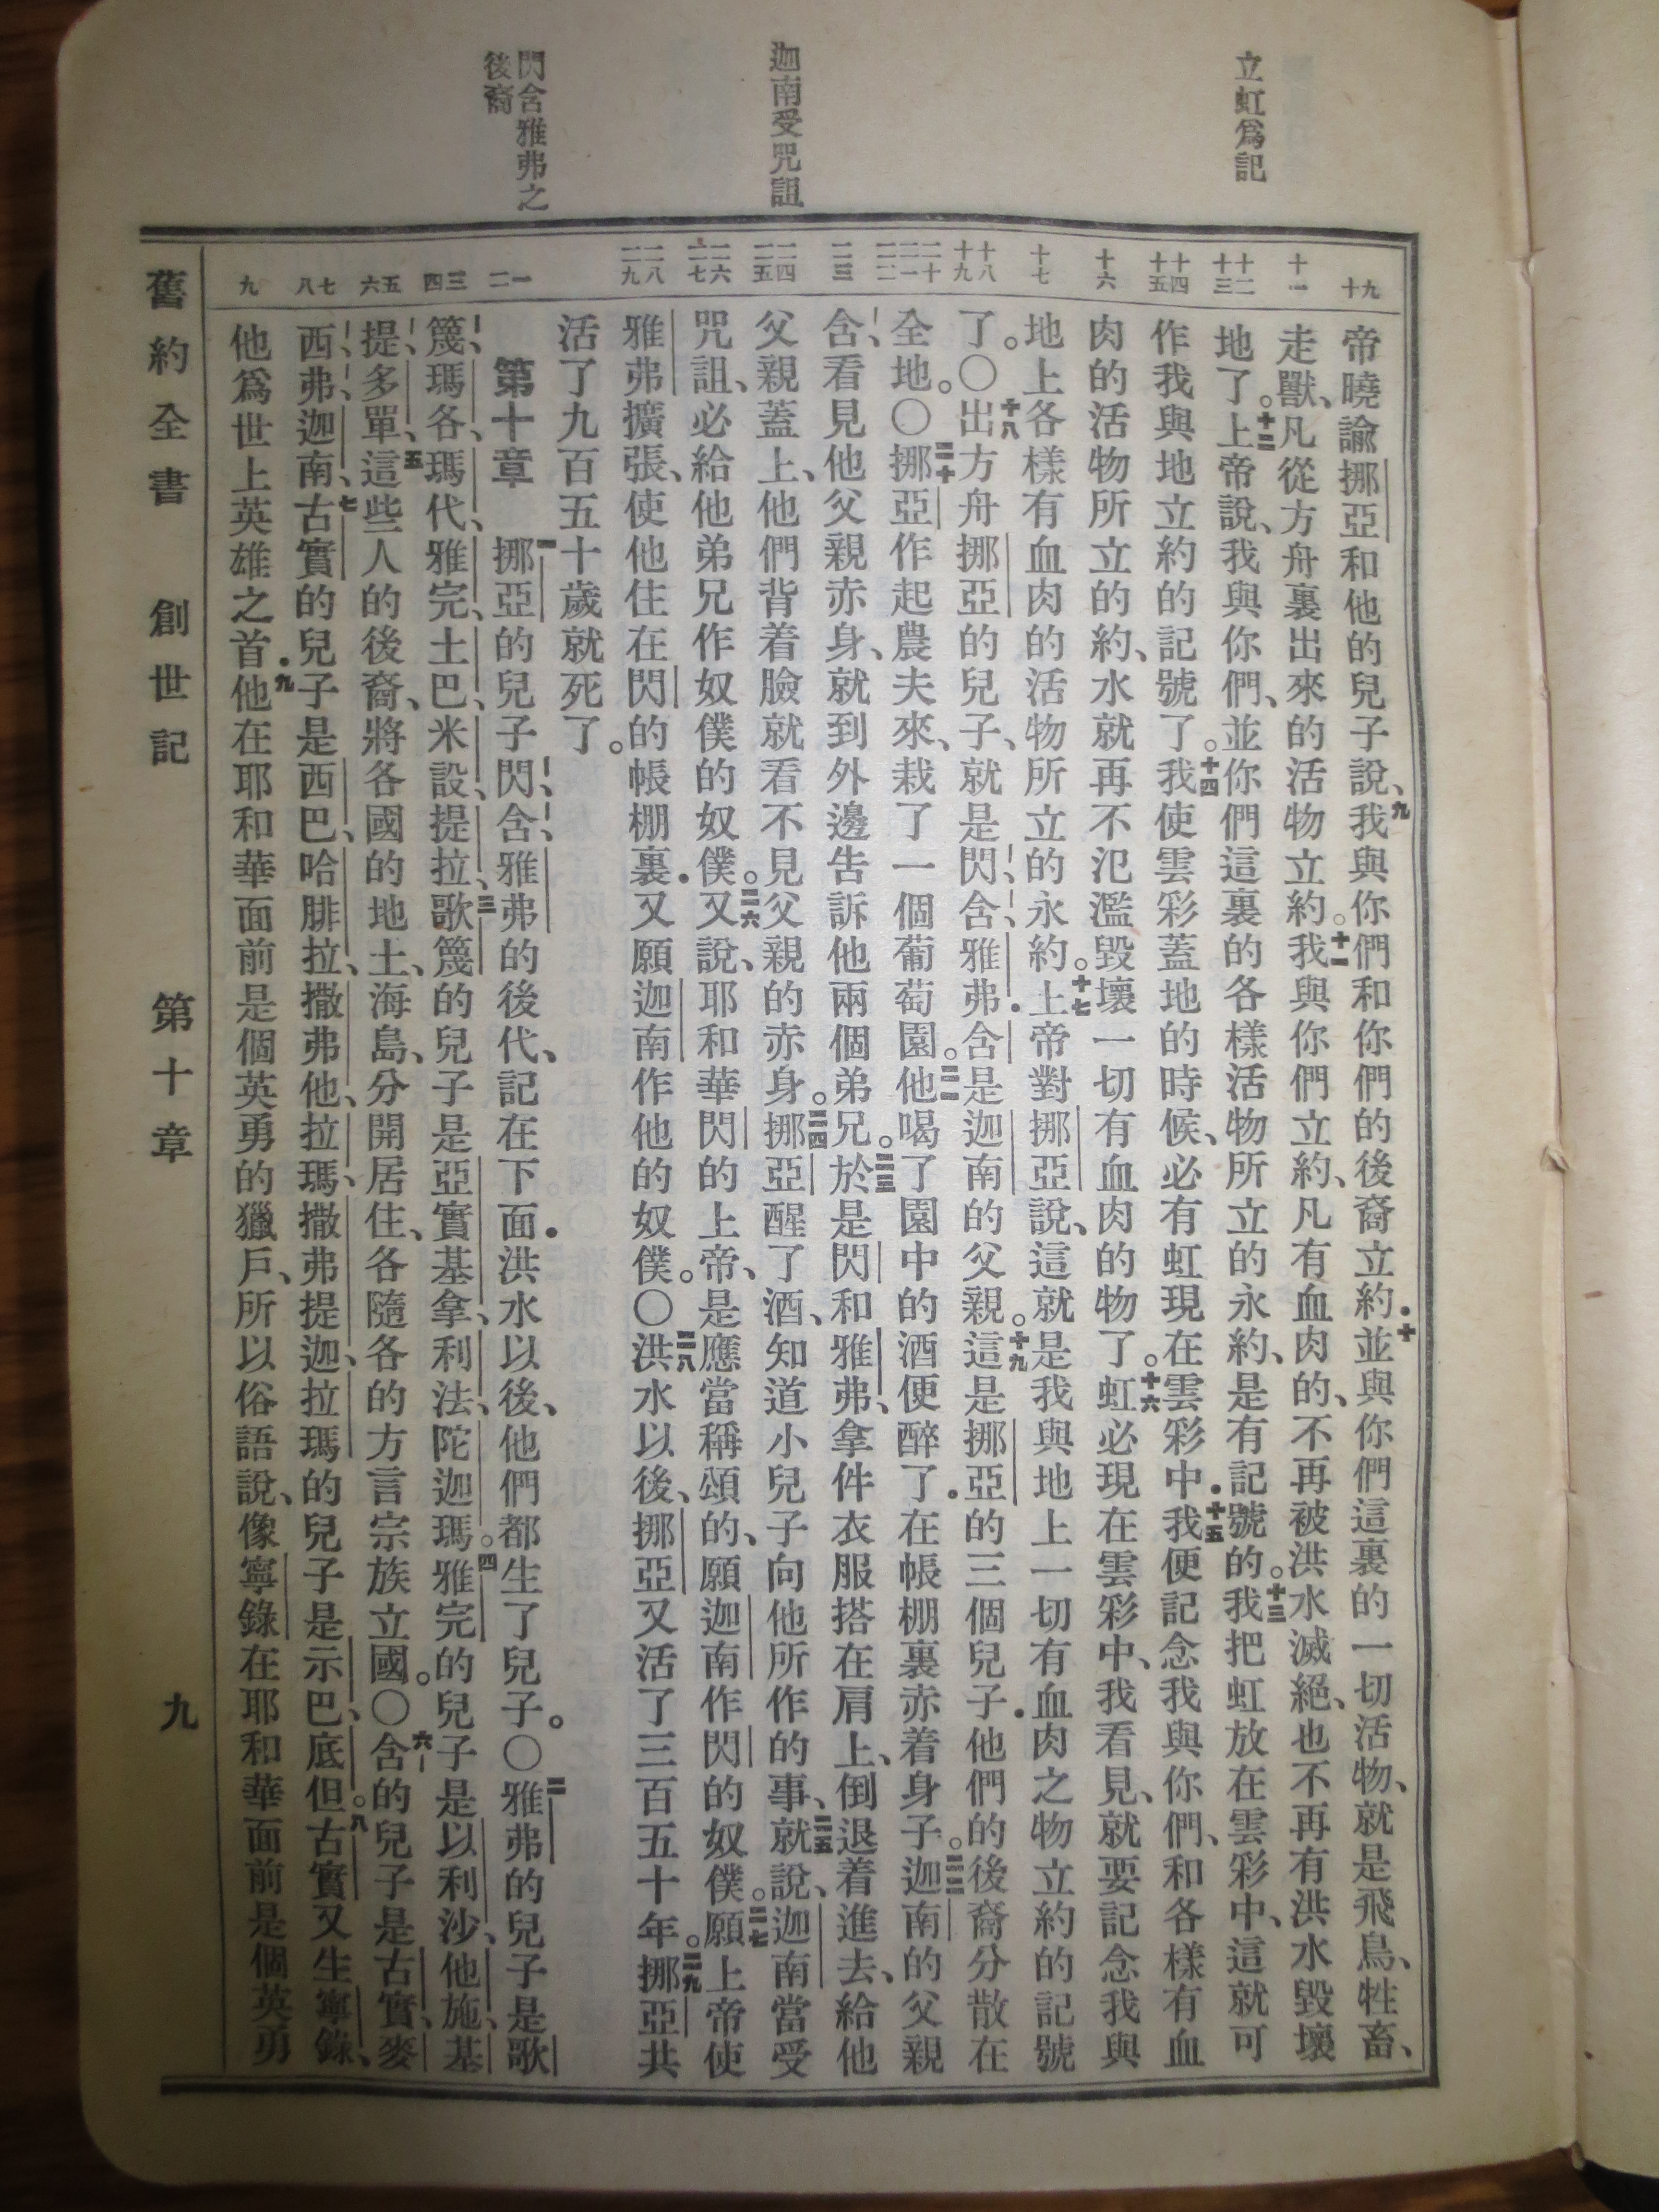 立虹爲記
迦南受咒詛
閃含雅弗之
後裔
九十
十一
十二十三
十四十五
十六
十七
十八十九
二十二一二二
二三
二四二五
二六二七
二八二九
一二
三四
五六
七八
九
帝曉諭挪亞和他的兒子說、九我與你們和你們的後裔立約．十並與你們這裏的一切活物、就是飛鳥、牲畜、
走獸、凡從方舟裏出來的活物立約。十一我與你們立約、凡有血肉的、不再被洪水滅絕、也不再有洪水毀壞
地了。十二上帝說、我與你們、並你們這裏的各樣活物所立的永約、是有記號的。十三我把虹放在雲彩中、這就可
作我與地立約的記號了。十四我使雲彩蓋地的時候、必有虹現在雲彩中．十五我便記念我與你們、和各樣有血
肉的活物所立的約、水就再不氾濫毀壞一切有血肉的物了。十六虹必現在雲彩中、我看見、就要記念我與
地上各樣有血肉的活物所立的永約。十七上帝對挪亞說、這就是我與地上一切有血肉之物立約的記號
了。〇十八出方舟挪亞的兒子、就是閃、含、雅弗．含是迦南的父親。十九這是挪亞的三個兒子．他們的後裔分散在
全地。〇二十挪亞作起農夫來、栽了一個葡萄園。二一他喝了園中的酒便醉了．在帳棚裏赤着身子。二二迦南的父親
含、看見他父親赤身、就到外邊告訴他兩個弟兄。二三於是閃和雅弗、拿件衣服搭在肩上、倒退着進去、給他
父親蓋上、他們背着臉就看不見父親的赤身。二四挪亞醒了酒、知道小兒子向他所作的事、二五就說、迦南當受
咒詛、必給他弟兄作奴僕的奴僕。二六又說、耶和華閃的上帝、是應當稱頌的、願迦南作閃的奴僕。二七願上帝使
雅弗擴張、使他住在閃的帳棚裏．又願迦南作他的奴僕。〇二八洪水以後、挪亞又活了三百五十年。二九挪亞共
活了九百五十歲就死了。
第十章 一挪亞的兒子閃、含、雅弗的後代、記在下面．洪水以後、他們都生了兒子。〇二雅弗的兒子是歌
篾、瑪各、瑪代、雅完、土巴、米設、提拉、三歌篾的兒子是亞實基拿、利法、陀迦瑪。四雅完的兒子是以利沙、他施、基
提、多單、五這些人的後裔、將各國的地土、海島、分開居住、各隨各的方言宗族立國。〇六含的兒子是古實、麥
西、弗、迦南、七古實的兒子是西巴、哈腓拉、撒弗他、拉瑪、撒弗提迦、拉瑪的兒子是示巴、底但。八古實又生寧錄、
他爲世上英雄之首．九他在耶和華面前是個英勇的獵戶、所以俗語說、像寧錄在耶和華面前是個英勇
舊約全書 創世記 第十章 九